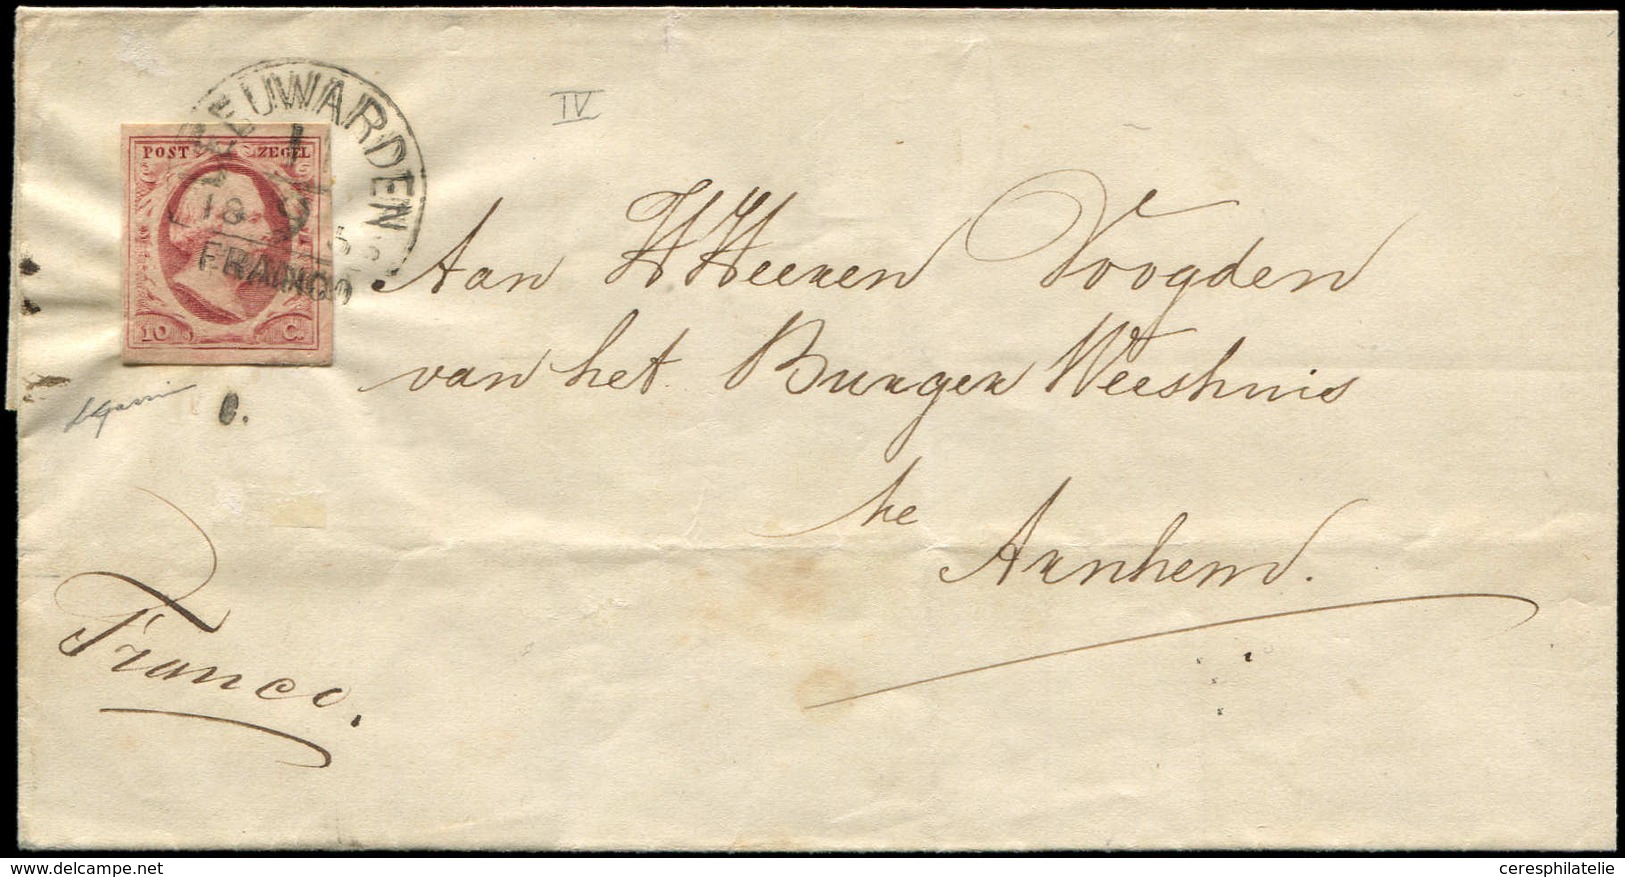 LEEUWARDEN
IV
1
POST ZEGEL
18
9
5
FRANCO
10 C.
Aan HHeeren Voogden
van het Burger Weeshuis
te
Arnhem.
C.
Franco.
www.delcampe.net
ceresphilatelie